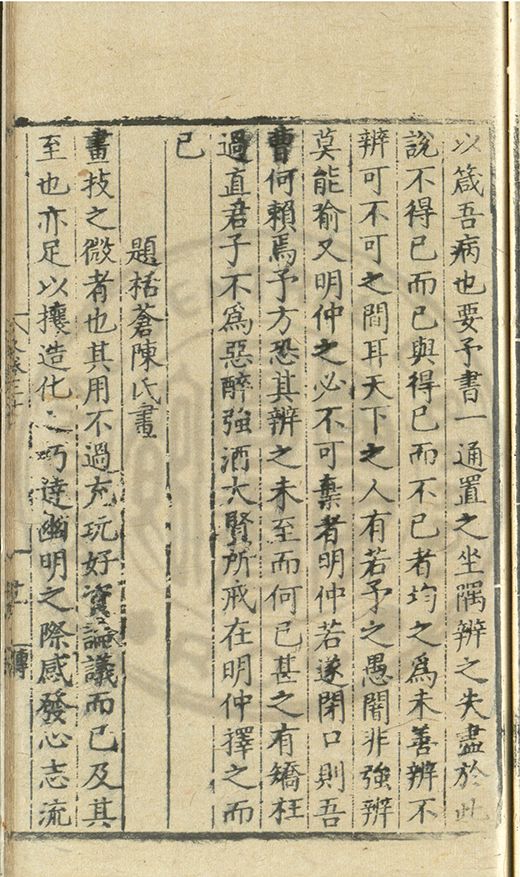 以箴吾病也要予書一通置之坐隅辨之失盡於此
說不得已而已與得已而不已者均之爲未善辨不
辨可不可之間耳天下之人有若予之愚闇非強辨
莫能喻又明仲之必不可棄者明仲若遂閉口則吾
曹何賴焉予方恐其辨之未至而何已甚之有矯枉
過直君子不爲惡醉強酒大賢所戒在明仲擇之而
已
題栝蒼陳氏畫
畫技之微者也其用不過充玩好資論議而已及其
至也亦足以攘造化之巧達幽明之際感發心志流